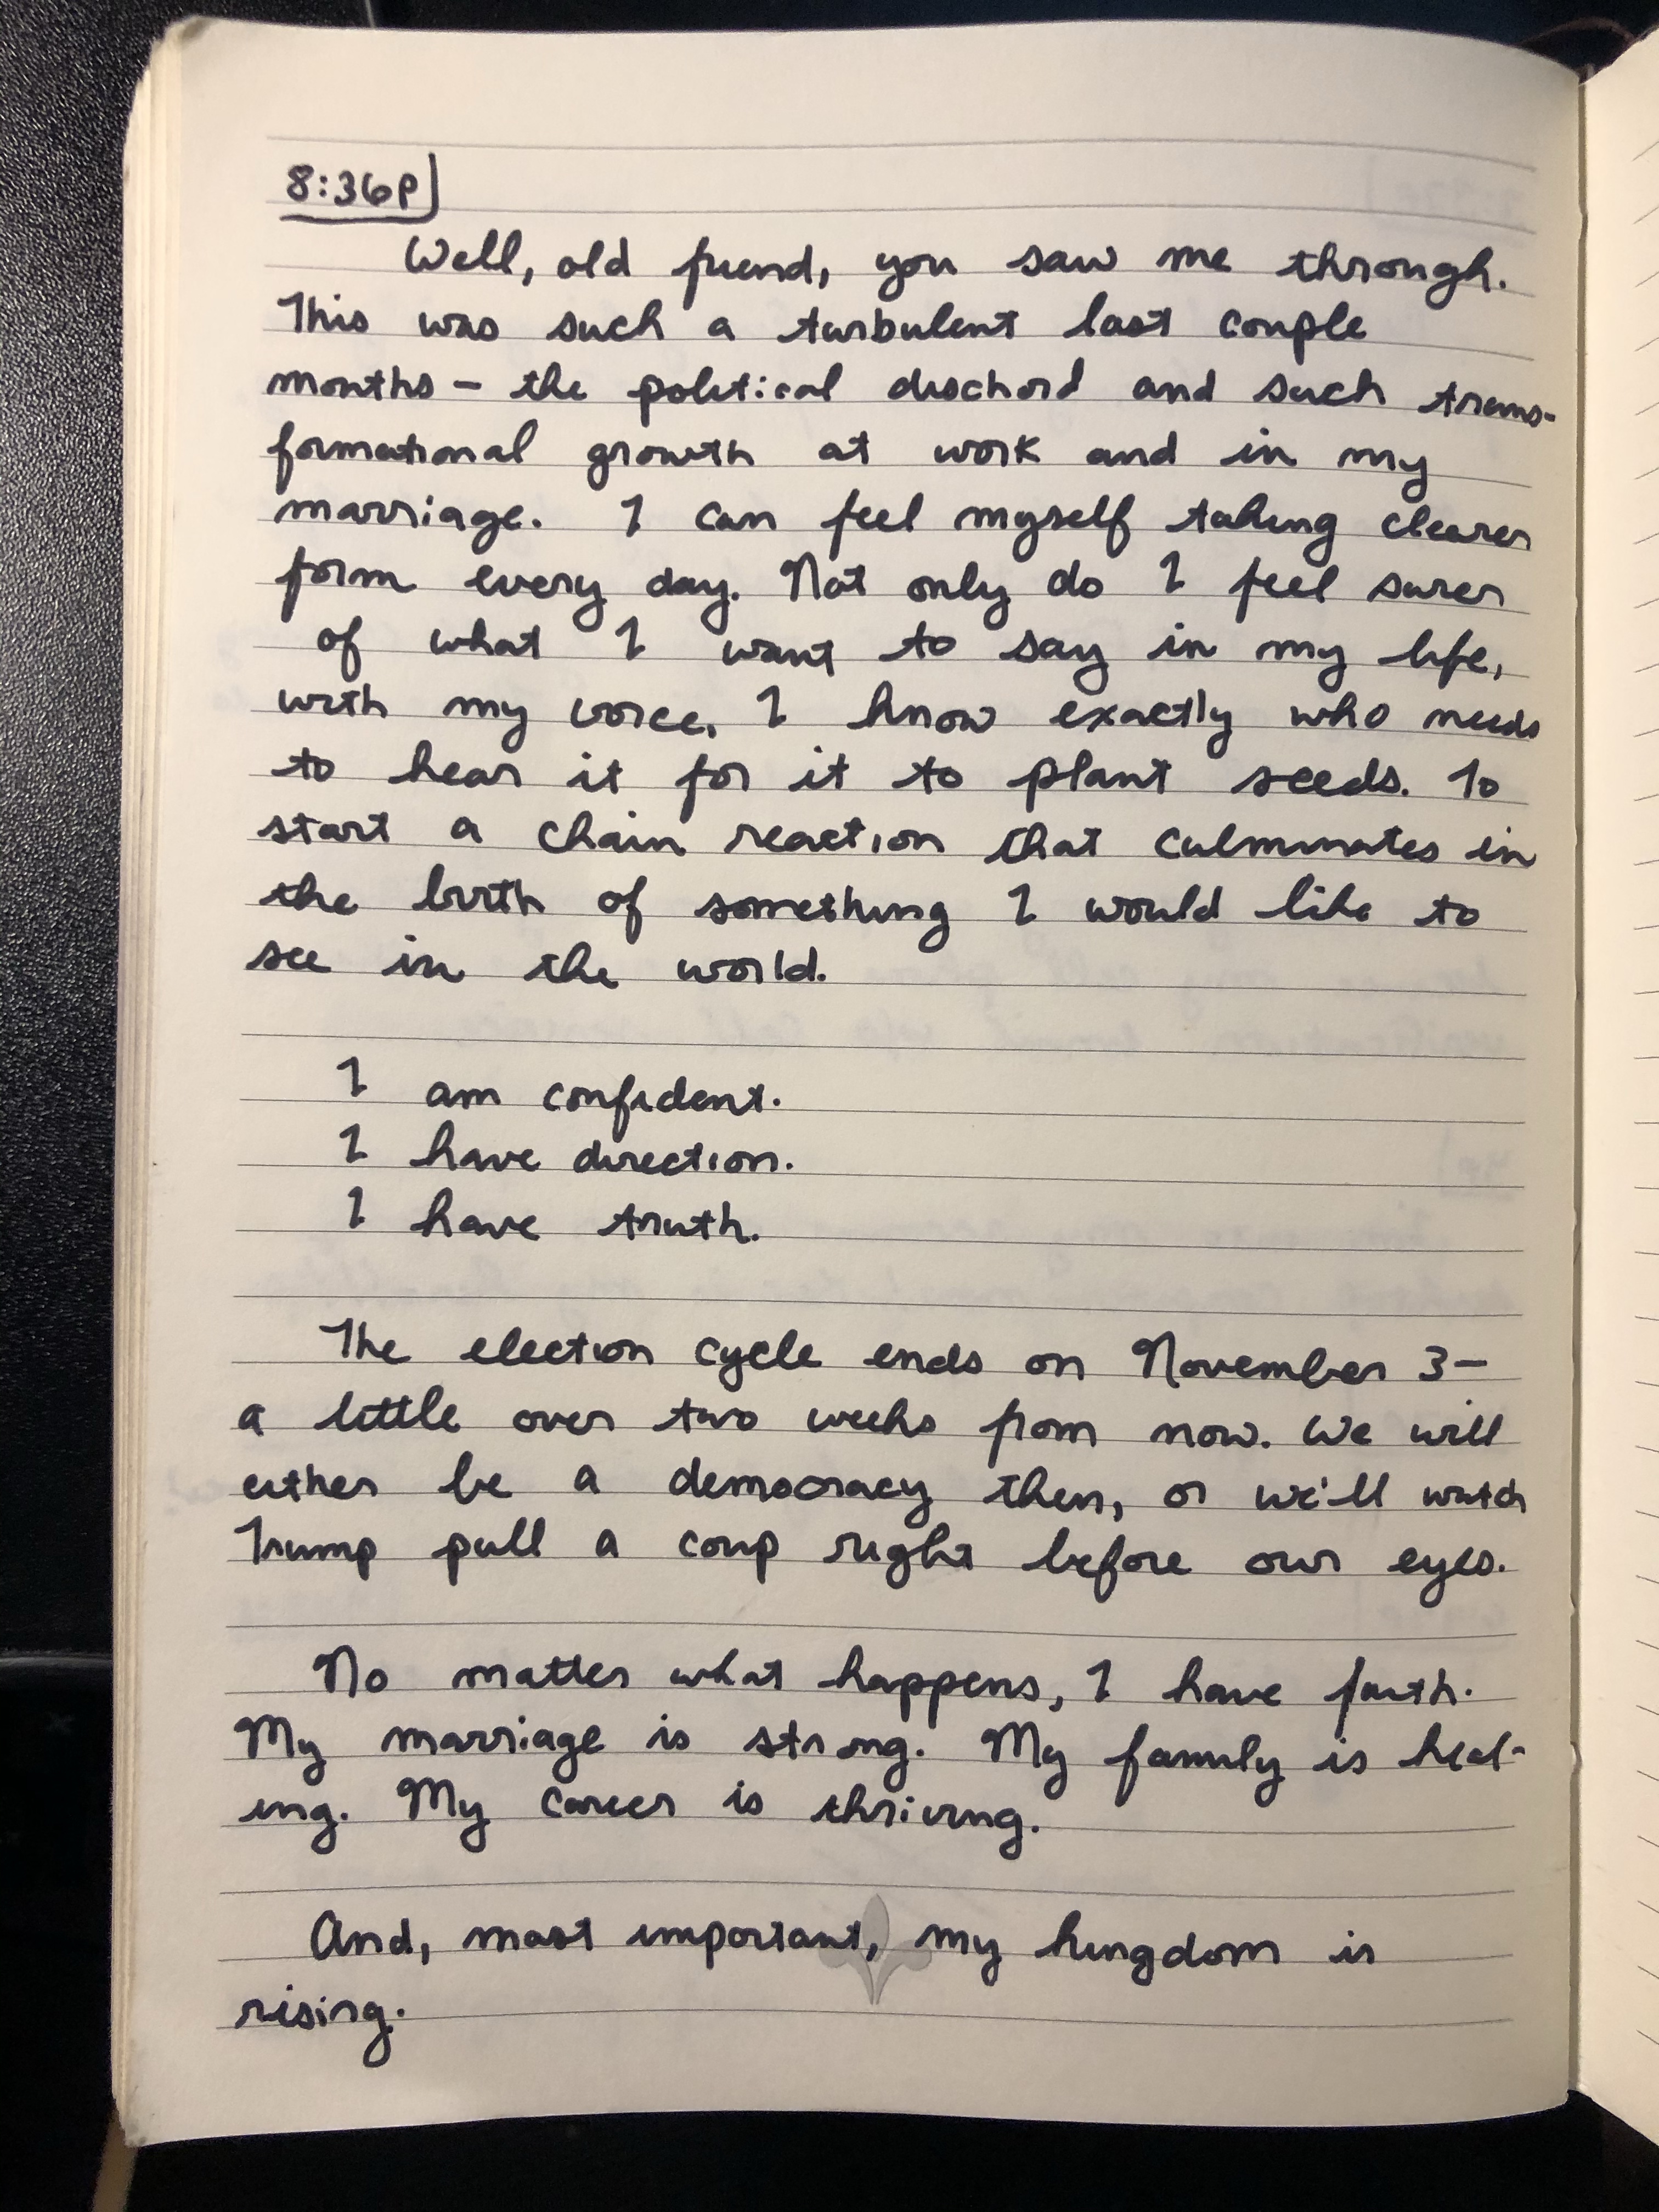 8:36p
Well, old friend, you saw me through.
This was such a turbulent last couple
months – the political dischord and such trans-
formational growth at work and in my
marriage. I can feel myself taking clearer
form every day. Not only do I feel surer
of what I want to say in my life,
with my voice, I know exactly who needs
to hear it for it to plant seeds. To
start a chain reaction that culminates in
the birth of something I would like to
see in the world.
I am confident.
I have direction.
I have truth.
The election cycle ends on November 3–
a little over two weeks from now. We will
either be a democracy then, or we'll watch
Trump pull a coup right before our eyes.
No matter what happens, I have faith.
My marriage is strong. My family is heal-
ing. My career is thriving.
And, most important, my kingdom is
rising.